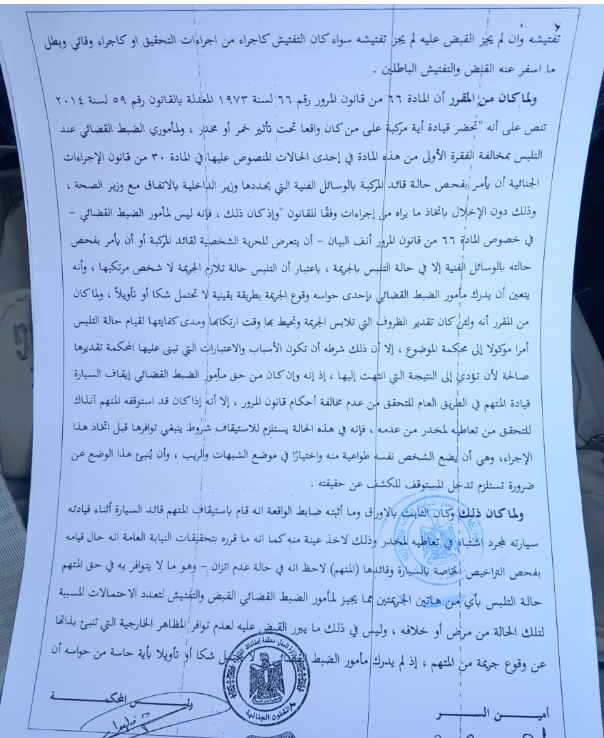 تفتيشه وأن لم يجز القبض عليه لم يجز تفتيشه سواء كان التفتيش كاجراء من اجراءات التحقيق او كاجراء وقائي وبطل
ما اسفر عنه القبض والتفتيش الباطلين .
ولما كان من المقرر أن المادة ٦٦ من قانون المرور رقم ٦٦ لسنة ١٩٧٣ المعدلة بالقانون رقم ٥٩ لسنة ٢٠١٤
تنص على أنه "تحضر قيادة أية مركبة على من كان واقعا تحت تأثير خمر أو مخدر ، ولمأموري الضبط القضائي عند
التلبس بمخالفة الفقرة الأولى من هذه المادة في إحدى الحالات المنصوص عليها في المادة ٣٠ من قانون الإجراءات
الجنائية أن يأمر بفحص حالة قائد المركبة بالوسائل الفنية التي يحددها وزير الداخلية بالاتفاق مع وزير الصحة ،
وذلك دون الإخلال باتخاذ ما يراه من إجراءات وفقًا للقانون "وإذ كان ذلك ، فإنه ليس لمأمور الضبط القضائي –
في خصوص المادة ٦٦ من قانون المرور أنف البيان – أن يتعرض للحرية الشخصية لقائد المركبة أو أن يأمر بفحص
حالته بالوسائل الفنية إلا في حالة التلبس بالجريمة ، باعتبار أن التلبس حالة تلازم الجريمة لا شخص مرتكبها ، وأنه
يتعين أن يدرك مأمور الضبط القضائي بإحدى حواسه وقوع الجريمة بطريقة يقينية لا تحتمل شكا أو تأويلاً ، ولما كان
من المقرر أنه ولئن كان تقدير الظروف التي تلابس الجريمة وتحيط بها وقت ارتكابها ومدى كفايتها لقيام حالة التلبس
أمرا موكولا إلى محكمة الموضوع ، إلا أن ذلك شرطه أن تكون الأسباب والاعتبارات التي تبنى عليها المحكمة تقديرها
صالحة لأن تؤدي إلى النتيجة التي انتهت إليها ، إذ إنه وإن كان من حق مأمور الضبط القضائي إيقاف السيارة
قيادة المتهم في الطريق العام للتحقق من عدم مخالفة أحكام قانون المرور ، إلا أنه إذا كان قد استوقفه المتهم آنذاك
للتحقق من تعاطيه لمخدر من عدمه ، فإنه في هذه الحالة يستلزم للاستيقاف شروط ينبغي توافرها قبل اتخاذ هذا
الإجراء، وهي أن يضع الشخص نفسه طواعية منه واختيارًا في موضع الشبهات والريب ، وأن يُنبئ هذا الوضع عن
ضرورة تستلزم تدخل المستوقف للكشف عن حقيقته .
ولما كان ذلك وكان الثابت بالاوراق وما أثبته ضابط الواقعة انه قام باستيقاف المتهم قائد السيارة أثناء قيادته
سيارته لمجرد اشتباه في تعاطيه لمخدر وذلك لاخذ عينة منه كما انه ما قرره بتحقيقات النيابة العامة انه حال قيامه
بفحص التراخيص الخاصة بالسيارة وقائدها (المتهم) لاحظ انه في حالة عدم اتزان – وهو ما لا يتوافر به في حق المتهم
حالة التلبس بأي من هاتين الجريمتين مما يجيز لمأمور الضبط القضائي القبض والتفتيش لتعدد الاحتمالات المسببة
لتلك الحالة من مرض أو خلافه ، وليس في ذلك ما يبرر القبض عليه لعدم توافر المظاهر الخارجية التي تنبئ بذاتها
عن وقوع جريمة من المتهم ، إذ لم يدرك مأمور الضبط لا شكا أو تأويلا بأية حاسة من حواسه أن
أمين السر
رئيس المحكمة